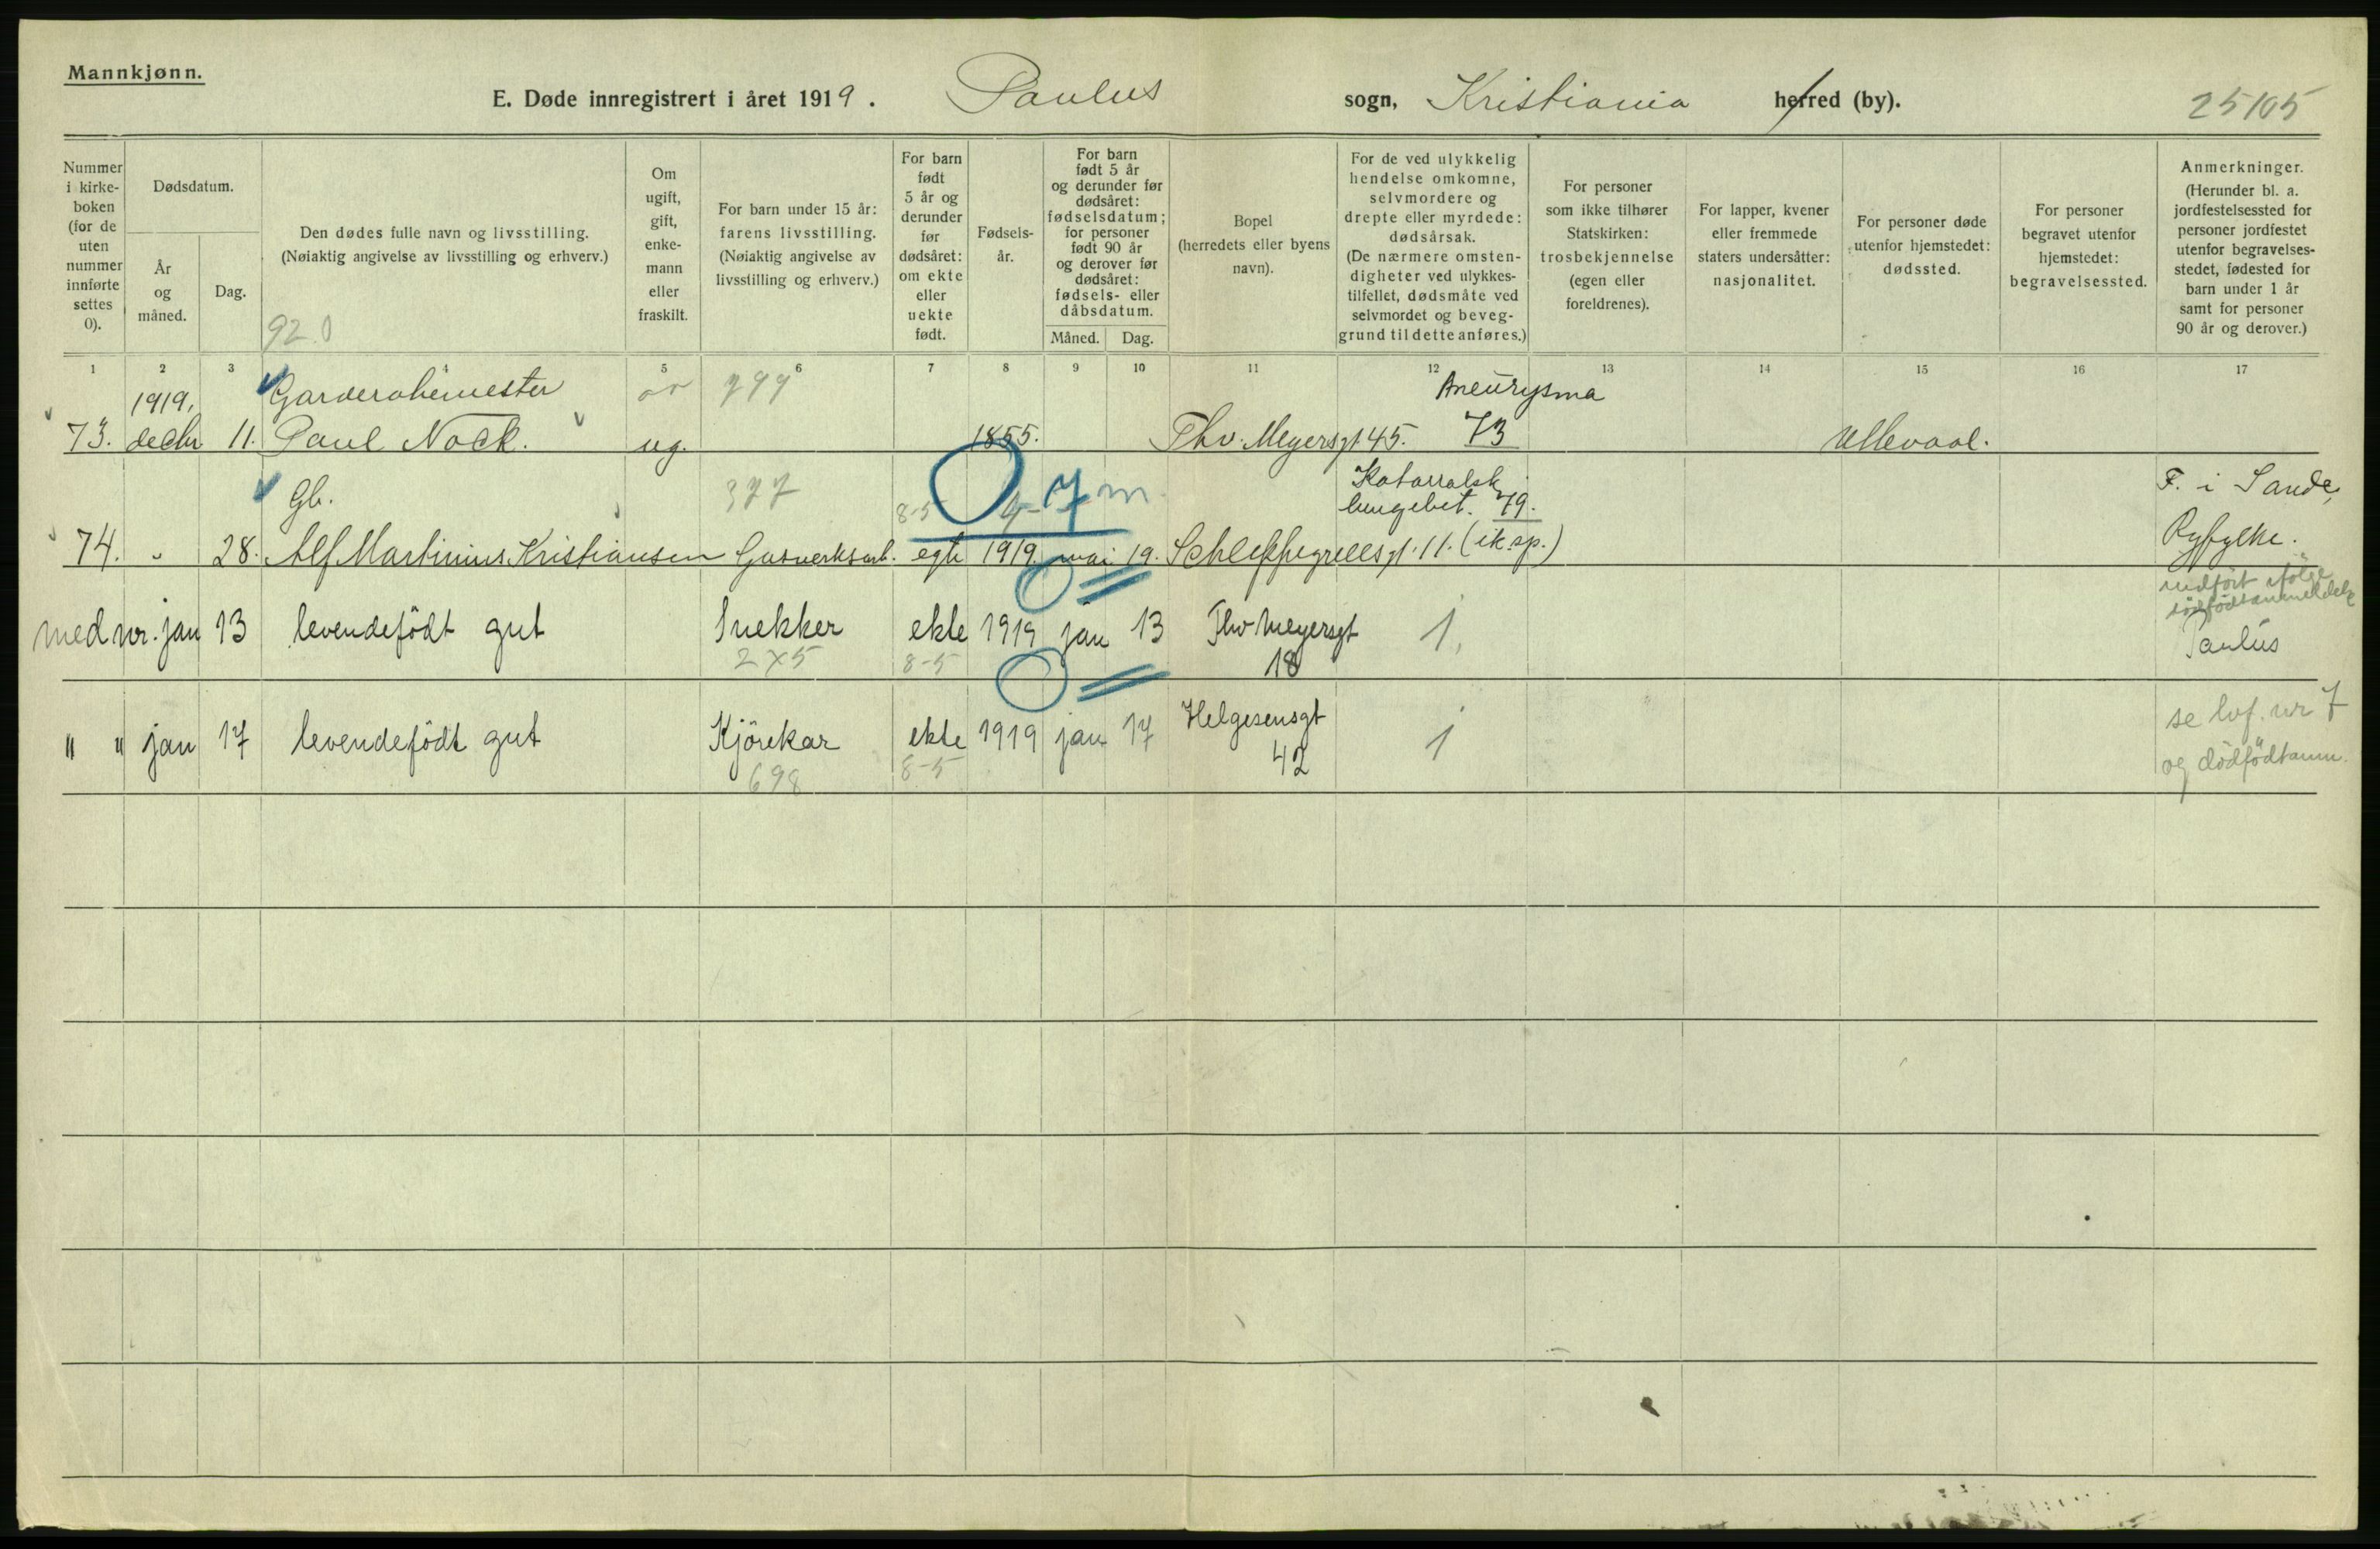 Mannkjønn.
E. Døde innregistrert i året 1919. Paulus sogn, Kristiania herred (by). 25105
Nummer i kirke-boken (for de uten nummer innførte settes 0).
Dødsdatum.
År og måned.
Dag.
Den dødes fulle navn og livsstilling.
(Nøiaktig angivelse av livsstilling og erhverv.)
92.0
Om ugift, gift, enke-mann eller fraskilt.
For barn under 15 år: farens livsstilling.
(Nøiaktig angivelse av livsstilling og erhverv.)
For barn født 5 år og derunder før dødsåret: om ekte eller uekte født.
Fødsels-år.
For barn født 5 år og derunder før dødsåret: fødselsdatum; for personer født 90 år og derover før dødsåret: fødsels- eller dåbsdatum.
Måned. Dag.
Bopel (herredets eller byens navn).
For de ved ulykkelig hendelse omkomne, selvmordere og drepte eller myrdede: dødsårsak.
(De nærmere omsten-digheter ved ulykkes-tilfellet, dødsmåte ved selvmordet og beveg-grund til dette anføres.)
For personer som ikke tilhører Statskirken: trosbekjennelse (egen eller foreldrenes).
For lapper, kvener eller fremmede staters undersåtter: nasjonalitet.
For personer døde utenfor hjemstedet: dødssted.
For personer begravet utenfor hjemstedet: begravelsessted.
Anmerkninger.
(Herunder bl. a. jordfestelsessted for personer jordfestet utenfor begravelses-stedet, fødested for barn under 1 år samt for personer 90 år og derover.)
1 2 3 4 5 6 7 8 9 10 11 12 13 14 15 16 17
1919, Garderobemester 299 Aneurysma
73. decbr 11. Paul Nock. ug. 1855. Thv. Meyersgt 45. 73 Ullevaal.
Gb. 377 8-5 7 m Katarralsk F. i Sande,
lungebet. 79.
74. " 28. Alf Martinius Kristiansen Gasverksarb. egte 1919 mai 19. Schleppegrellsgt. 11. (ik.sp.) Ryfylke.
indført ifølge
dødfødtanmeldelse
med nr. jan 13 levendefödt gut Snekker ekte 1919 jan 13 Thv Meyersgt 1, Paulus
2x5 8-5 18
" " jan 17 levendefödt gut Kjörekar ekte 1919 jan 17 Helgesensgt 1 se lvf. nr 7
698 8-5 42 og dödfödtanm.